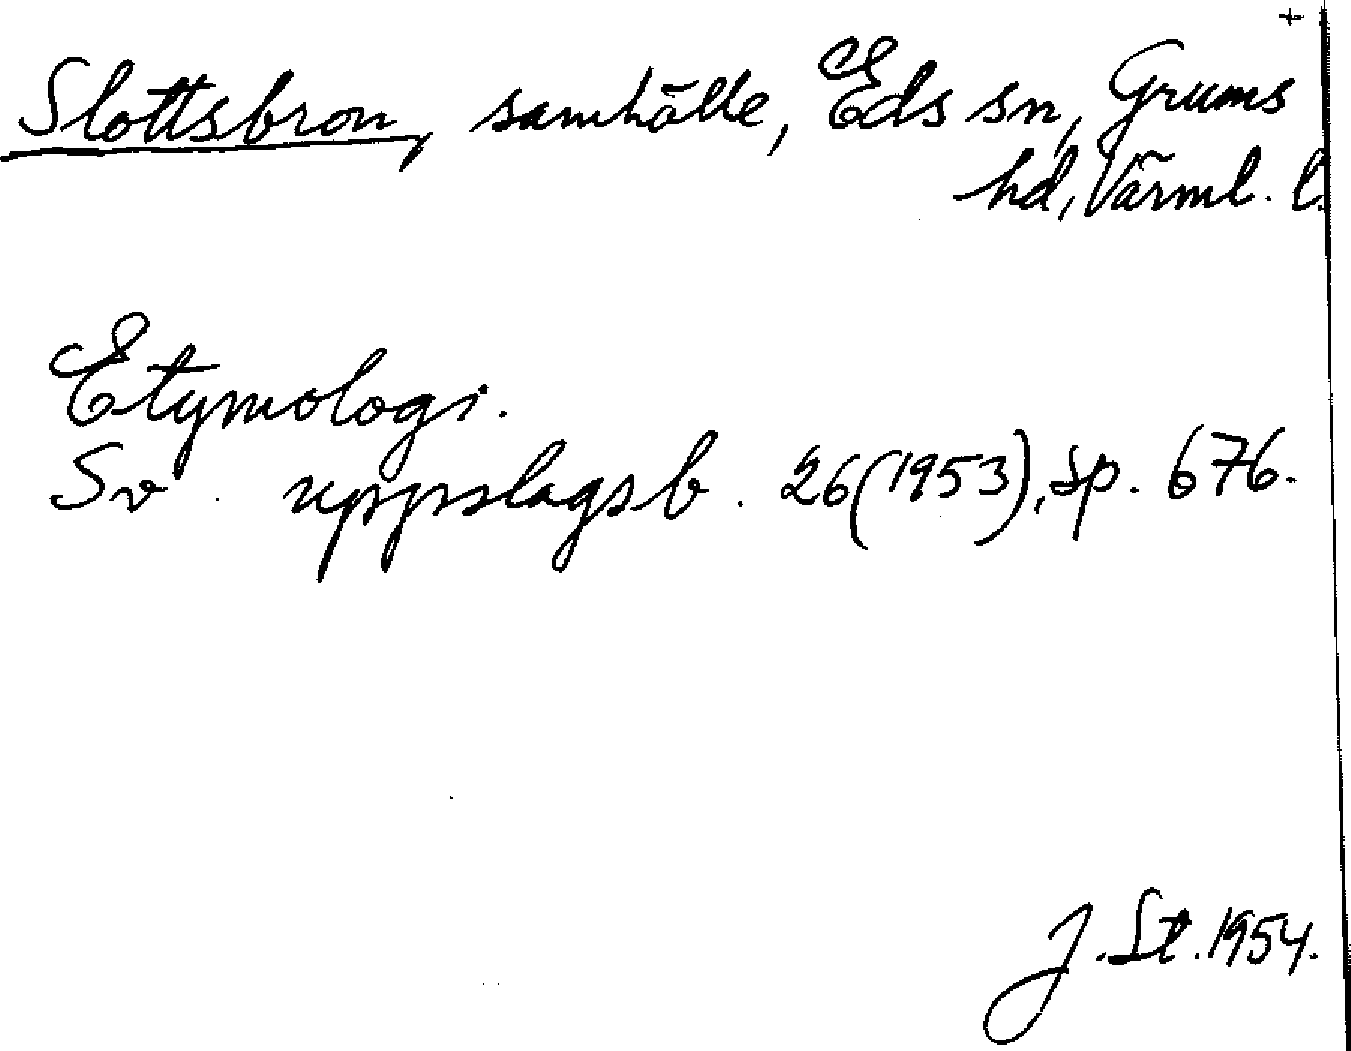 +
Slottsbron, samhälle, Eds sn, Grums
hd, Värml. l.
Etymologi.
Sv. uppslagsb. 26(1953), sp. 676.
J. St. 1954.